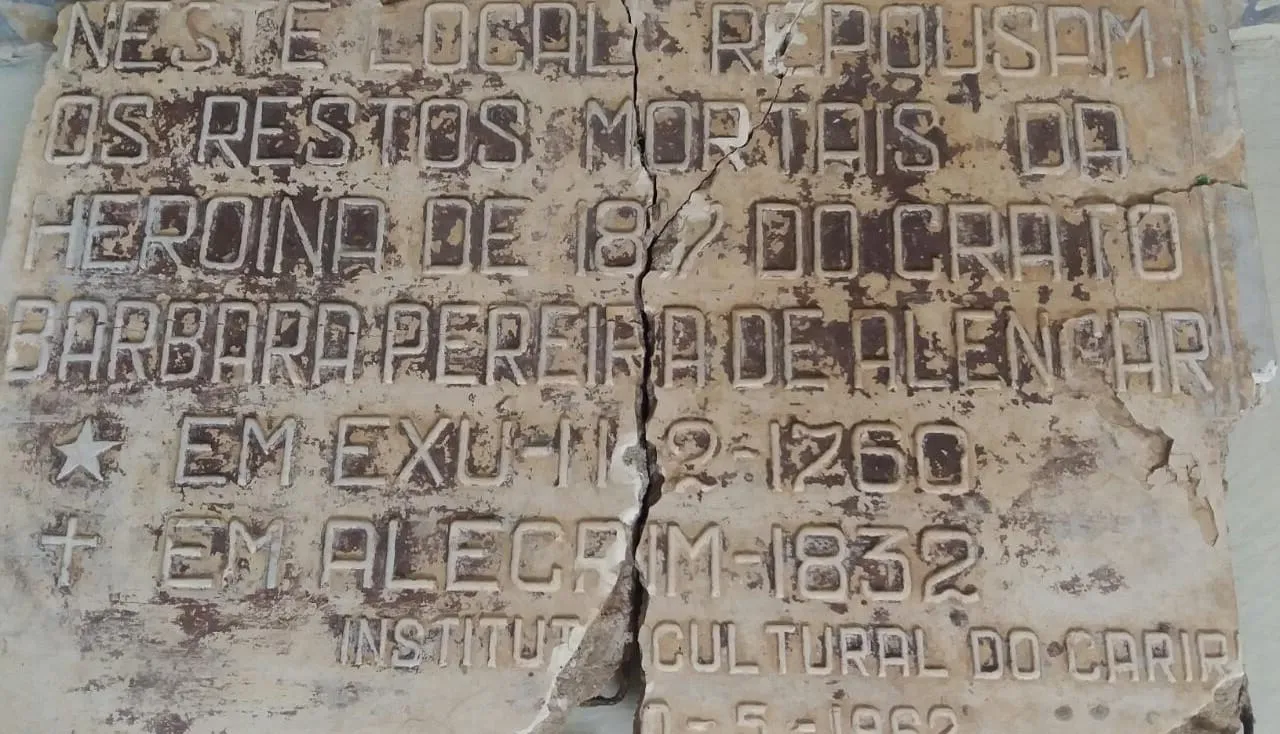 NESTE LOCAL REPOUSAM
OS RESTOS MORTAIS DA
HEROINA DE 1817 DO CRATO
BARBARA PEREIRA DE ALENCAR
★ EM EXÚ-11-2-1760
† EM ALEGRIM-1832
INSTITUTO CULTURAL DO CARIRI
0-5-1962